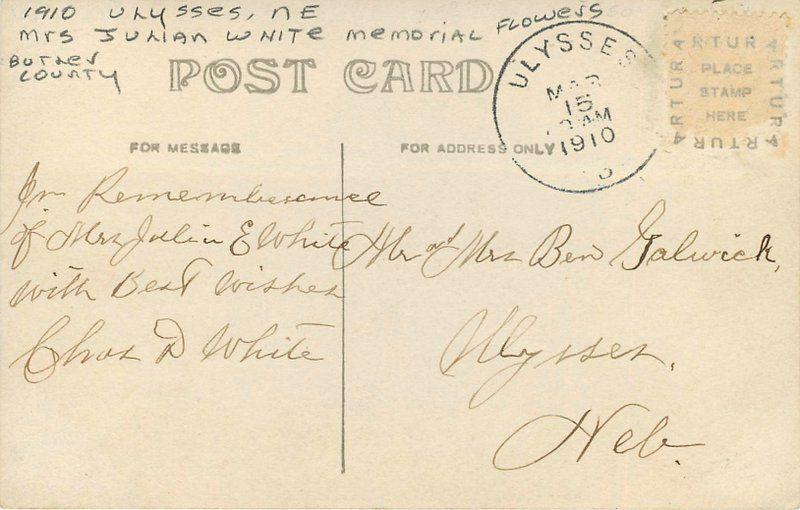 1910 ULYSSES, NE
MRS JULIAN WHITE MEMORIAL FLOWERS
BUTLER
COUNTY
POST CARD
ULYSSES
MAR
15
AM
1910
ARTURA
ARTURA
ARTURA
ARTURA
PLACE
STAMP
HERE
FOR MESSAGE
FOR ADDRESS ONLY
In Rememberance
of Mrs Julia E White
with Best wishes
Chas D White
Mr and Mrs Ben Galwick,
Ulysses,
Neb.